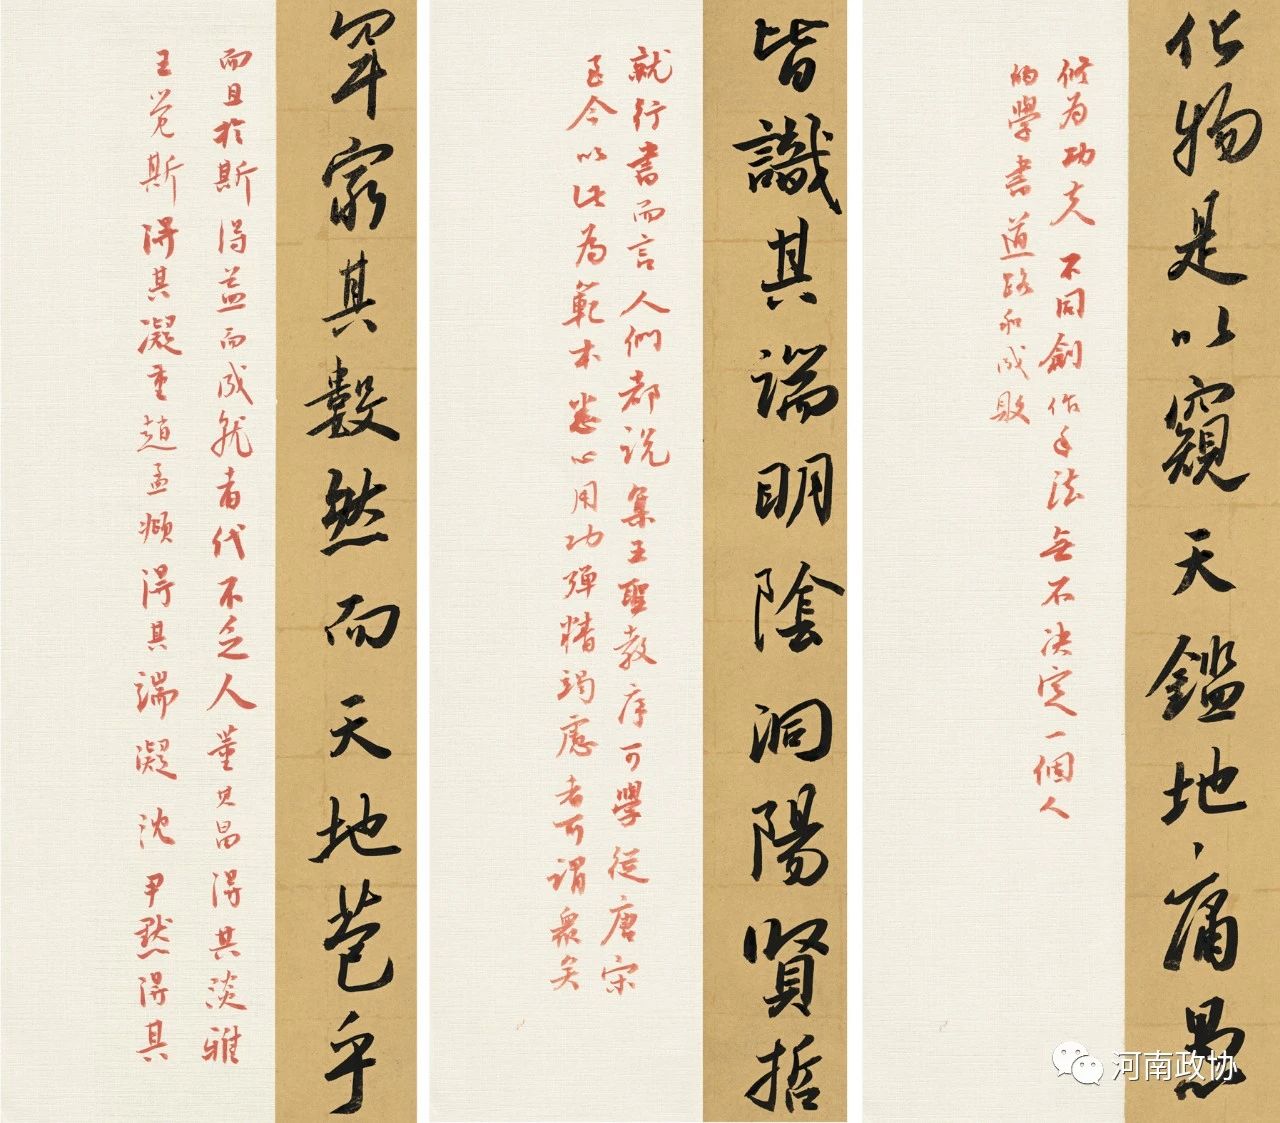 化物是以窺天鑑地庸愚
修为功夫不同創作手法無不决定一個人
的學書道路和成敗
皆識其端明陰洞陽賢哲
就行書而言人們都说集王聖教序可學從唐宋
至今以此為範本悉心用功殫精竭慮者可謂衆矣
罕窮其數然而天地苞乎
而且於斯得益而成就者代不乏人董其昌得其淡雅
王觉斯得其凝重趙孟頫得其端凝沈尹默得其
河南政协